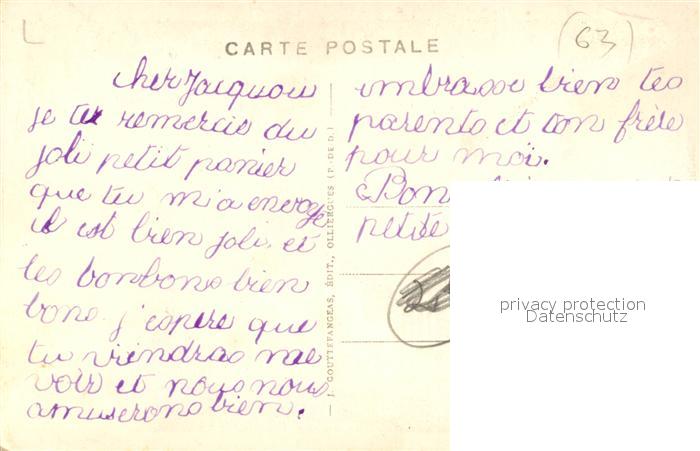 CARTE POSTALE
(63)
cher Jacquou
je te remercie du
joli petit panier
que tu m'a envoyé
il est bien joli et
les bonbons bien
bons j'espere que
tu viendras me
voir et nous nous
amuserons bien.
embrasse bien tes
parents et ton frère
pour moi.
Bon
petite
J. GOUTTEFANGEAS, ÉDIT., OLLIERGUES (P.-DE-D.)
privacy protection
Datenschutz